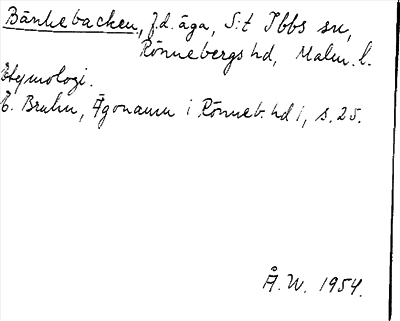 Bänkebacken, f.d. äga, S:t Ibbs sn,
Rönnebergs hd, Malm. l.
Etymologi.
E. Bruhn, Ägonamn i Rönneb. hd 1, s. 25.
Å.W. 1954.